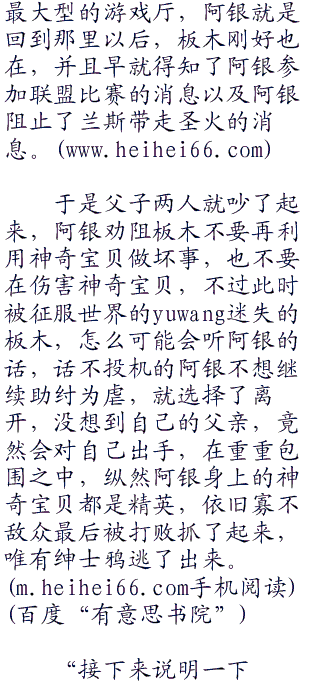 最大型的游戏厅，阿银就是
回到那里以后，板木刚好也
在，并且早就得知了阿银参
加联盟比赛的消息以及阿银
阻止了兰斯带走圣火的消
息。(www.heihei66.com)
于是父子两人就吵了起
来，阿银劝阻板木不要再利
用神奇宝贝做坏事，也不要
在伤害神奇宝贝，不过此时
被征服世界的yuwang迷失的
板木，怎么可能会听阿银的
话，话不投机的阿银不想继
续助纣为虐，就选择了离
开，没想到自己的父亲，竟
然会对自己出手，在重重包
围之中，纵然阿银身上的神
奇宝贝都是精英，依旧寡不
敌众最后被打败抓了起来，
唯有绅士鸦逃了出来。
(m.heihei66.com手机阅读)
(百度“有意思书院”)
“接下来说明一下